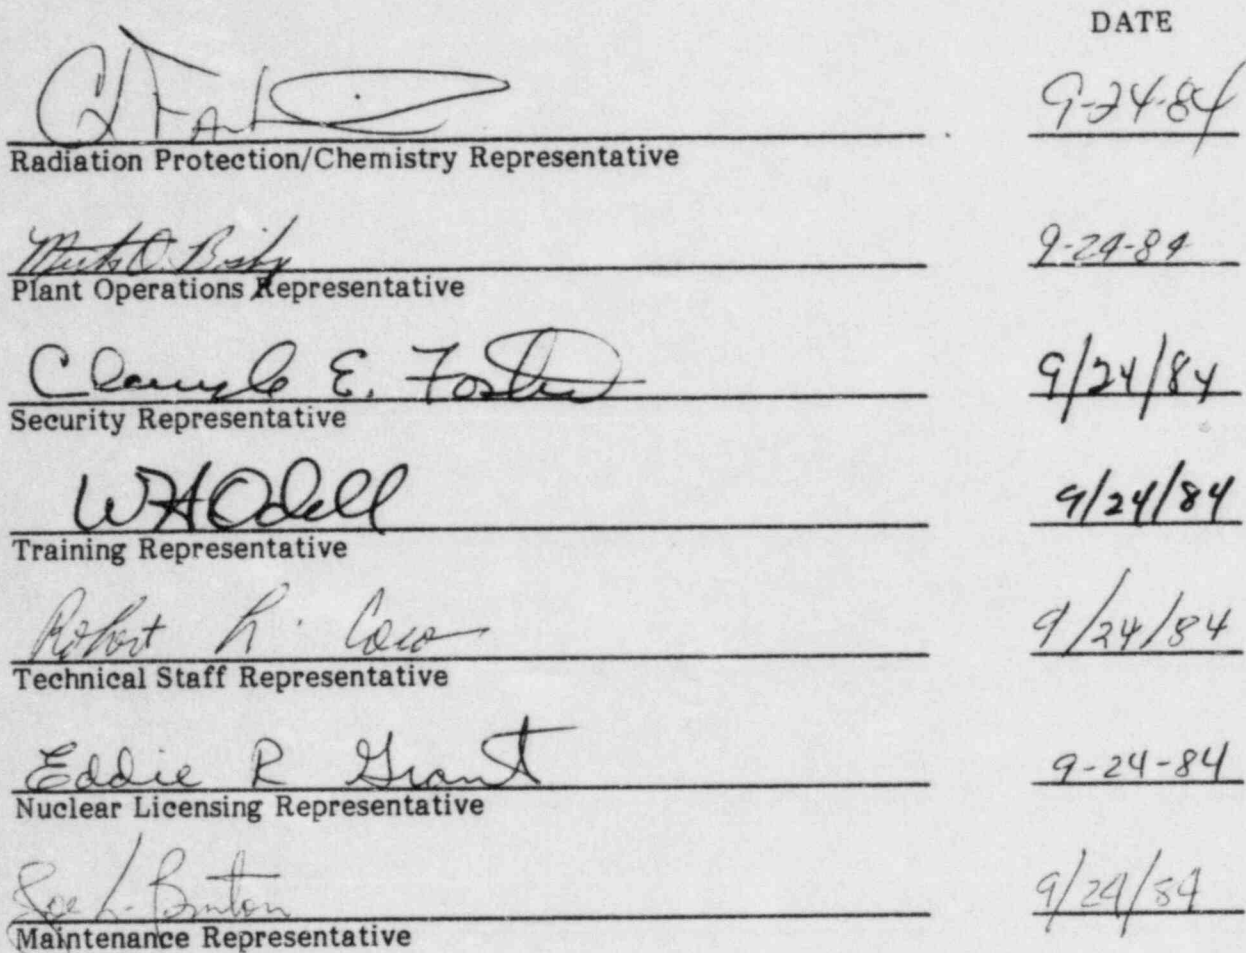 DATE
9-24-84
Radiation Protection/Chemistry Representative
9-24-84
Plant Operations Representative
E. Foster 9/24/84
Security Representative
WHOdell 9/24/84
Training Representative
Robert 9/24/84
Technical Staff Representative
Eddie R Grant 9-24-84
Nuclear Licensing Representative
Joe L. 9/24/84
Maintenance Representative